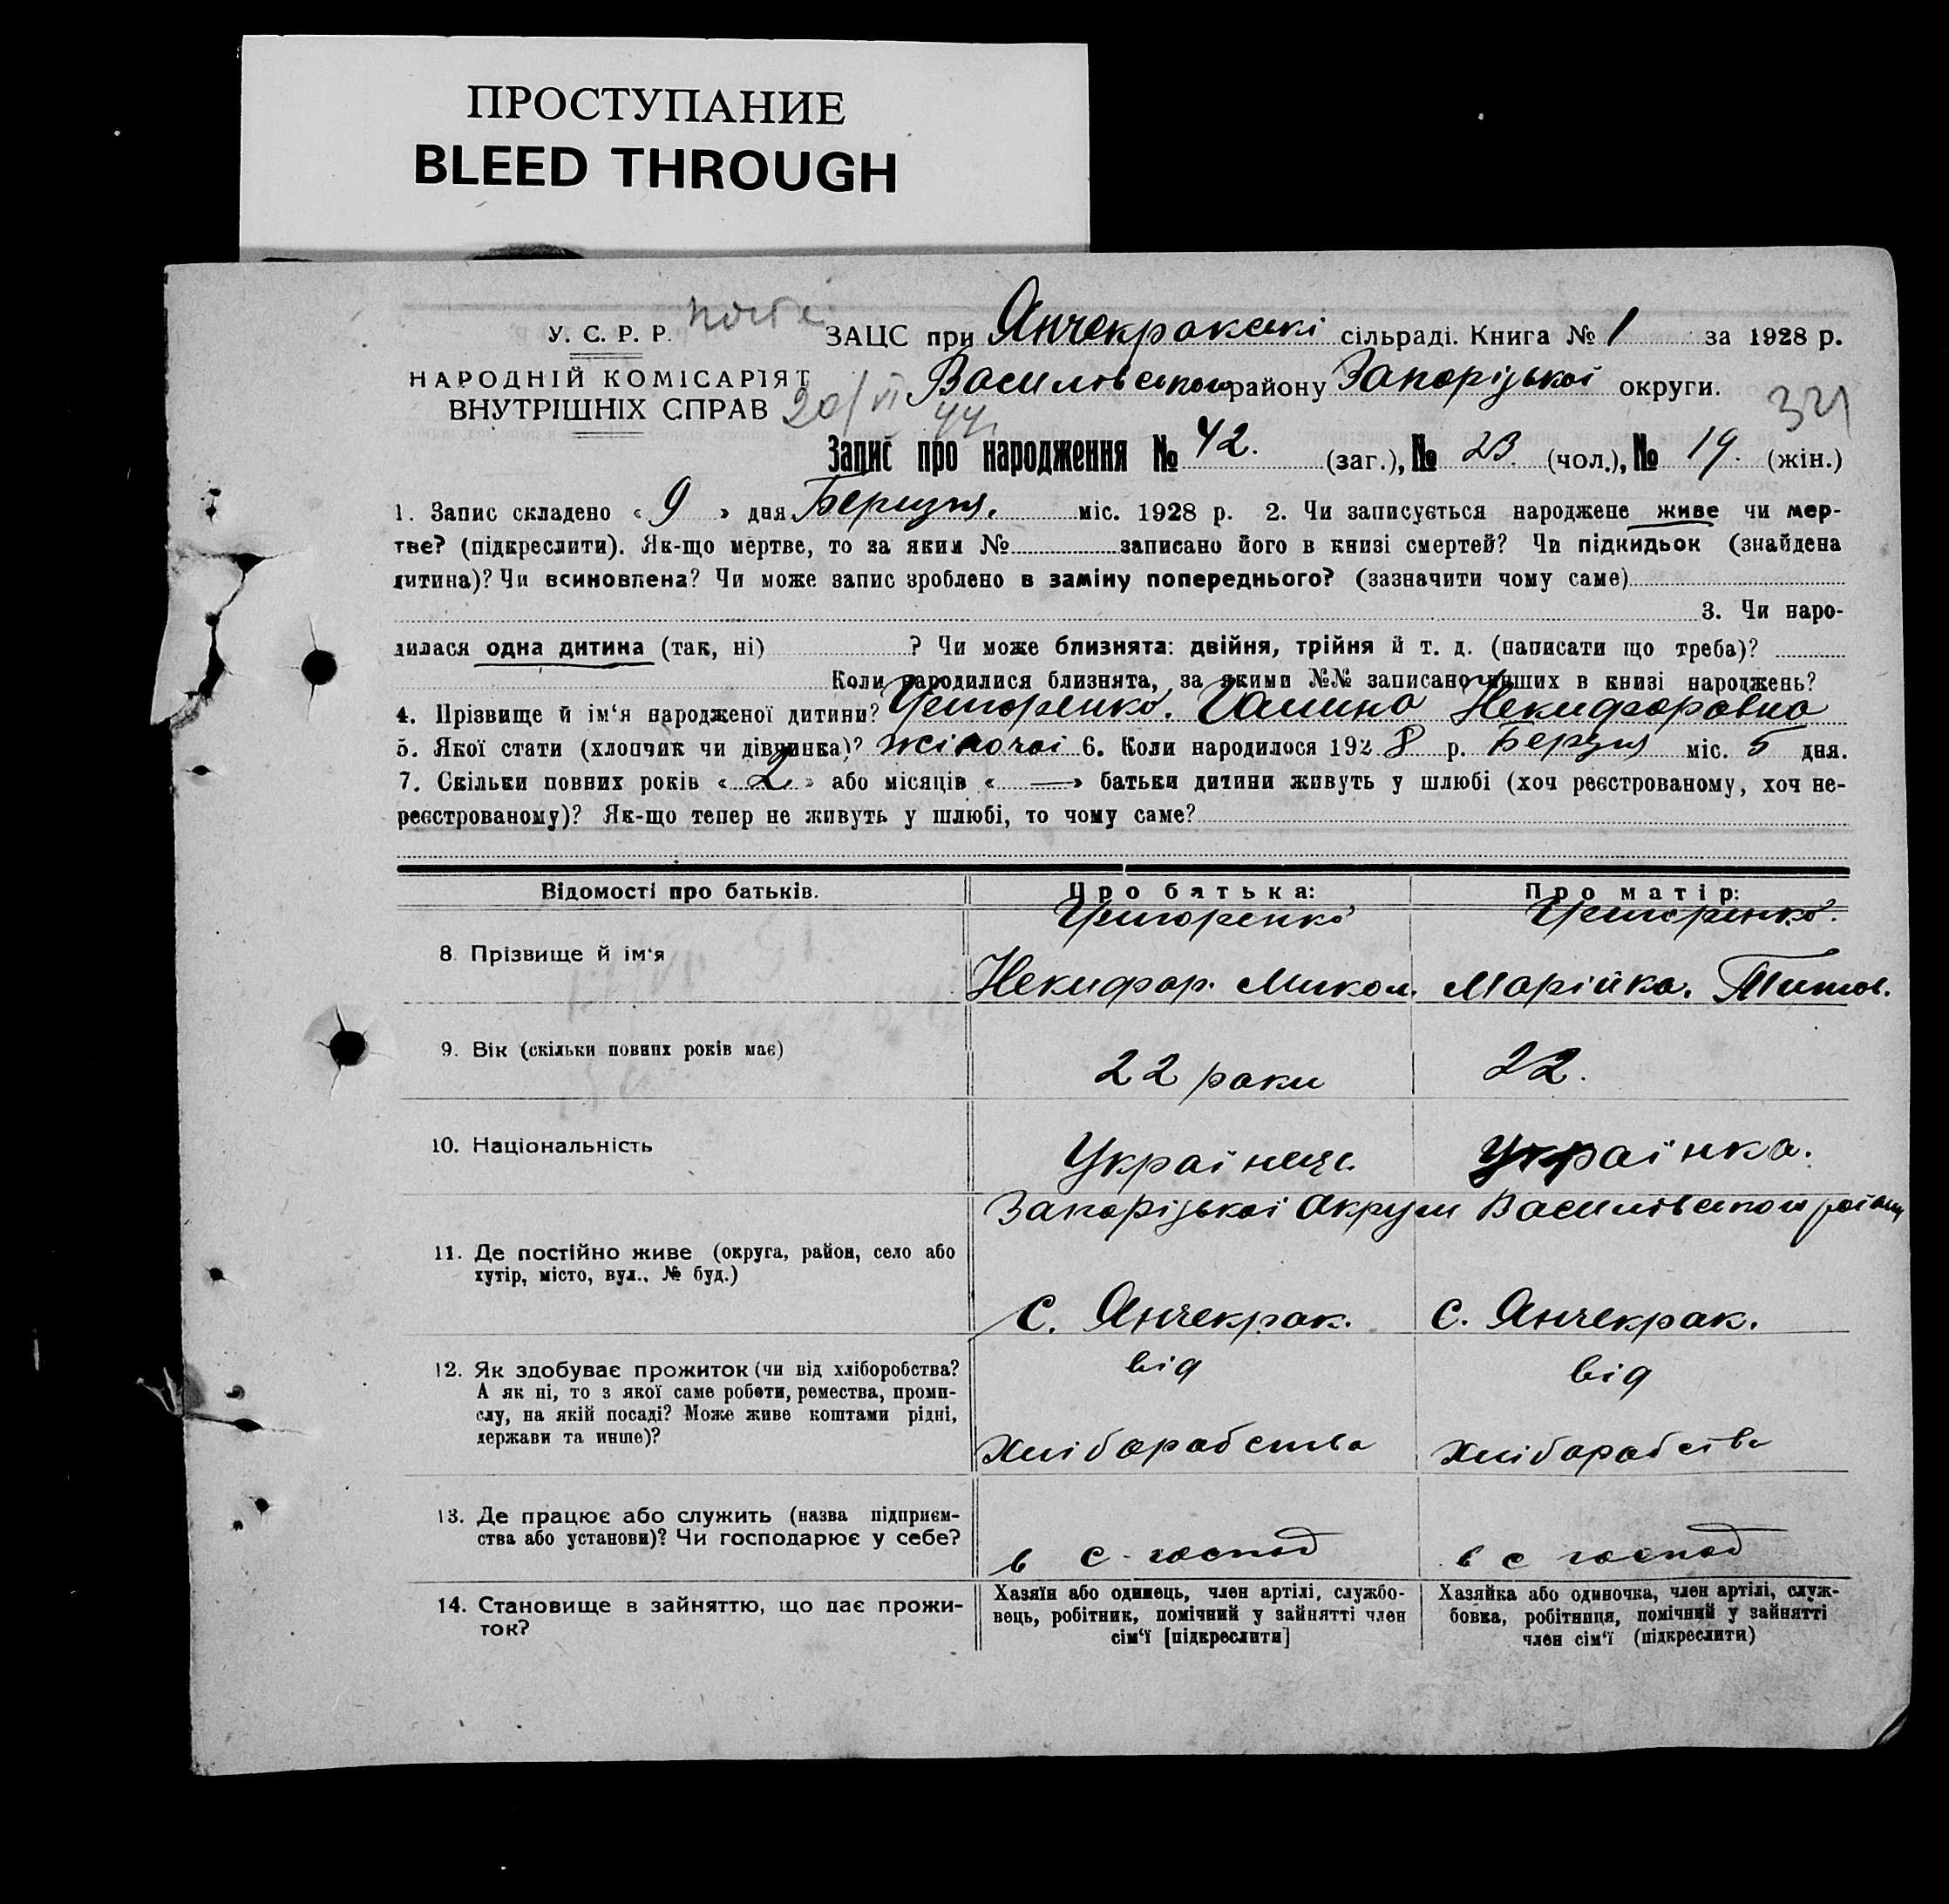 ПРОСТУПАНИЕ
BLEED THROUGH
У. С. Р. Р.
НАРОДНІЙ КОМІСАРІЯТ
ВНУТРІШНІХ СПРАВ
20/VI 44
ЗАЦС при Янчекракскі сільраді. Книга № 1 за 1928 р.
Василівського району Запорізької округи.
321
Запис про народження № 42. (заг.), № 23. (чол.), № 19. (жін.)
1. Запис складено « 9 » дня Березня. міс. 1928 р. 2. Чи записується народжене живе чи мер-
тве? (підкреслити). Як-що мертве, то за яким № записано його в книзі смертей? Чи підкидьок (знайдена
дитина)? Чи всиновлена? Чи може запис зроблено в заміну попереднього? (зазначити чому саме)
3. Чи наро-
дилася одна дитина (так, ні) ? Чи може близнята: двійня, трійня й т. д. (написати що треба)?
Коли народилися близнята, за якими №№ записано инших в книзі народжень?
4. Прізвище й ім‘я народженої дитини? Григоренко. Галина Некифоровна
5. Якої стати (хлопчик чи дівчинка)? жіночої 6. Коли народилося 1928 р. Березня міс. 5 дня.
7. Скільки повних років « 2 » або місяців « — » батьки дитини живуть у шлюбі (хоч реєстрованому, хоч не-
реєстрованому)? Як-що тепер не живуть у шлюбі, то чому саме?
Відомості про батьків. Про батька: Про матір:
8. Прізвище й ім‘я
Григоренко
Некифор. Микол.
Григоренко.
Марійка. Титов.
9. Вік (скільки повних років має) 22 роки 22.
10. Національність Українець. Українка.
11. Де постійно живе (округа, район, село або
хутір, місто, вул., № буд.)
Запорізької Округи Василівського району
С. Янчекрак. С. Янчекрак.
12. Як здобуває прожиток (чи від хліборобства?
А як ні, то з якої саме роботи, ремества, проми-
слу, на якій посаді? Може живе коштами рідні,
держави та инше)?
від
хліборобства
від
хліборобства
13. Де працює або служить (назва підприєм-
ства або установи)? Чи господарює у себе?
в с. господ в с господ
14. Становище в зайняттю, що дає прожи-
ток?
Хазяїн або одинець, член артілі, службо-
вець, робітник, помічний у зайнятті член
сім‘ї [підкреслити]
Хазяйка або одиночка, член артілі, служ-
бовка, робітниця, помічний у зайнятті
член сім‘ї (підкреслити)